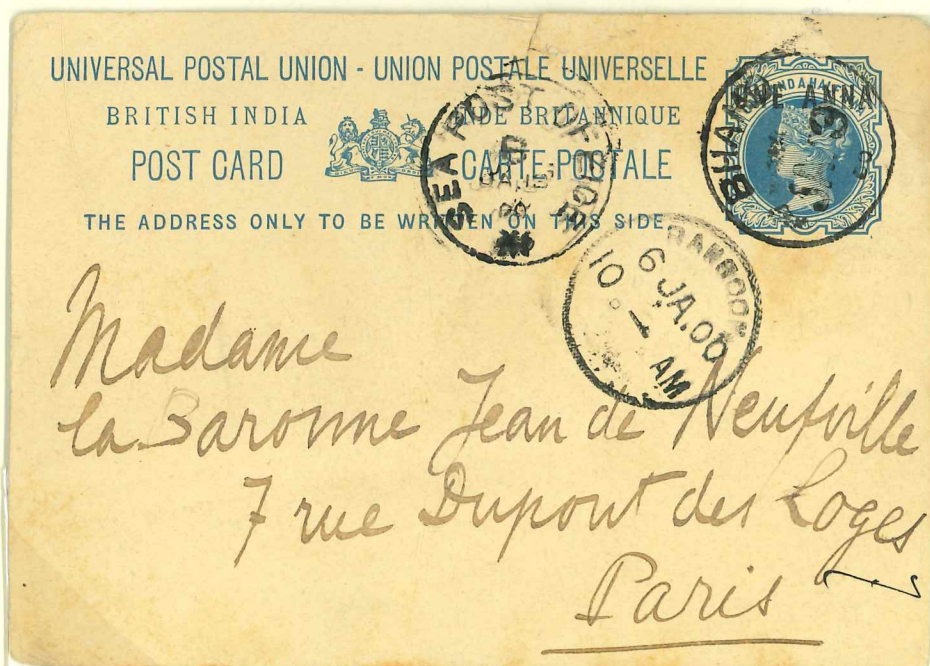 UNIVERSAL POSTAL UNION - UNION POSTALE UNIVERSELLE
BRITISH INDIA
INDE BRITANNIQUE
POST CARD
CARTE POSTALE
THE ADDRESS ONLY TO BE WRITTEN ON THIS SIDE
ONE ANNA
SEA POST OFFICE
RANGOON
6 JA.00
10
AM
Madame
la Baronne Jean de Neufville
7 rue Dupont des Loges
Paris